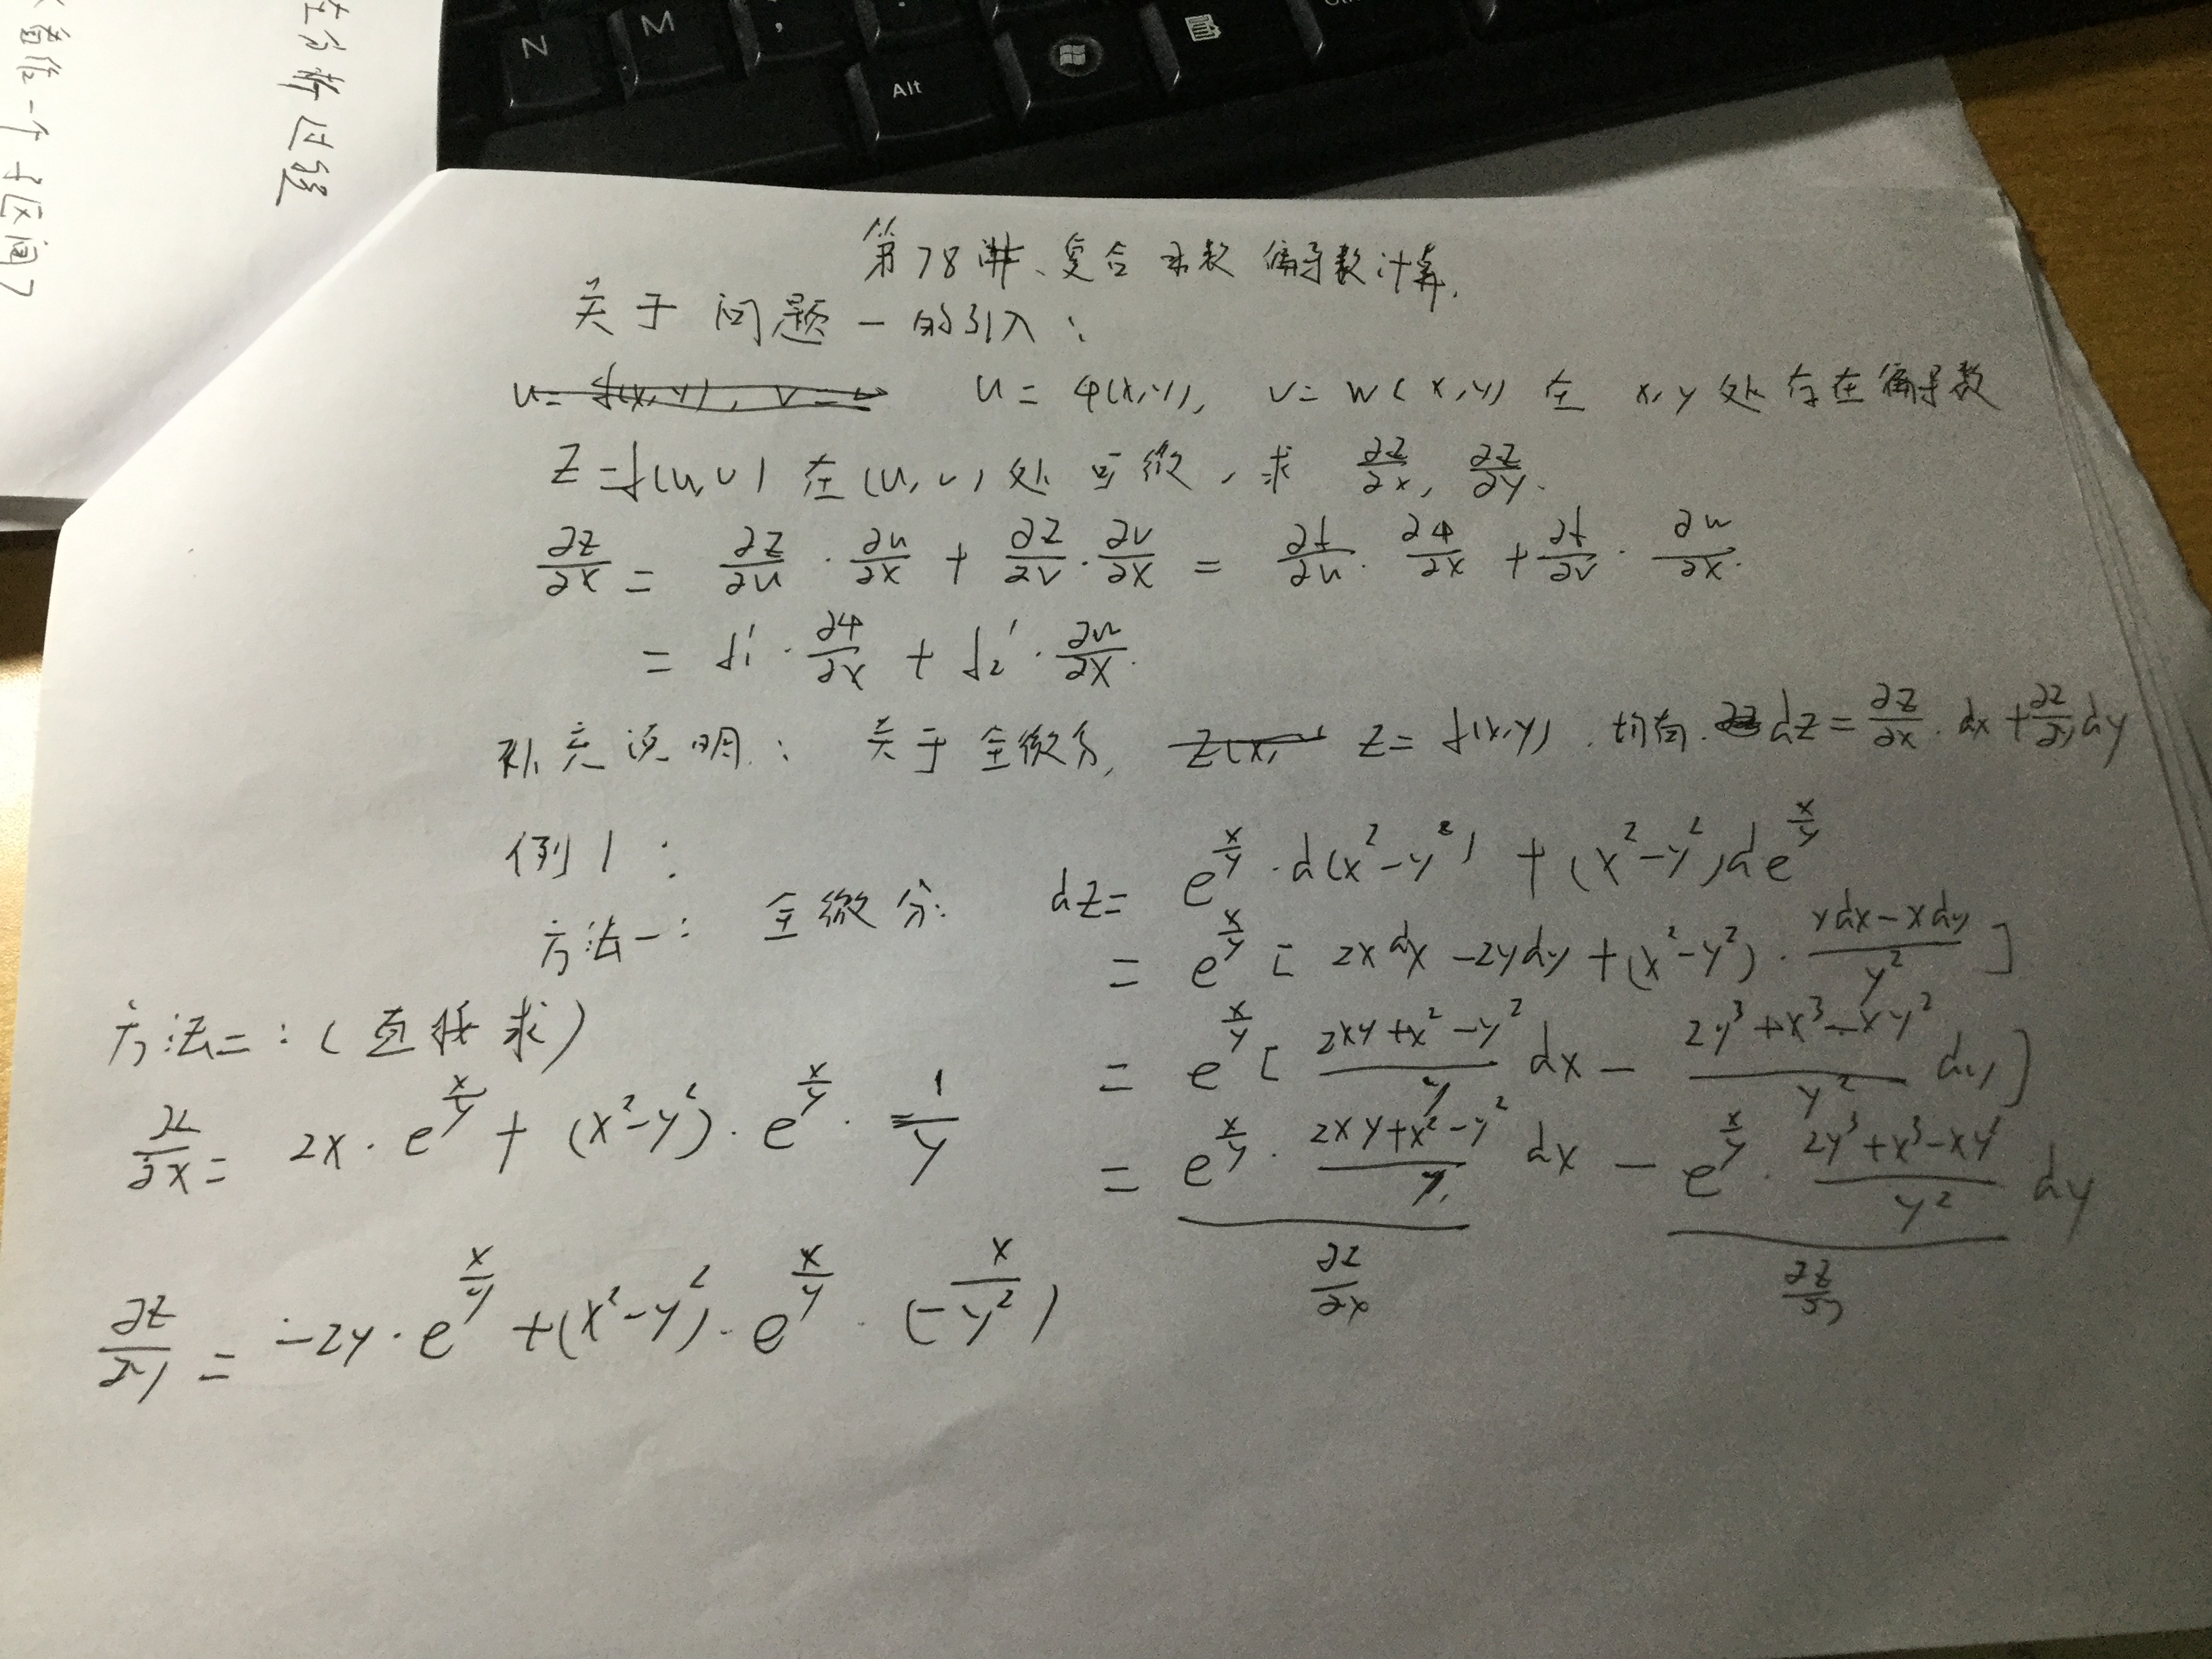 N M , . Alt
在分析过程
着任一个子区间7
第78讲、复合函数偏导数计算.
关于问题一的引入:
u = φ(x,y), v = w(x,y) 在 x,y 处存在偏导数
z = f(u,v) 在(u,v)处可微, 求 ∂z/∂x, ∂z/∂y.
∂z/∂x = ∂z/∂u · ∂u/∂x + ∂z/∂v · ∂v/∂x = ∂f/∂u · ∂φ/∂x + ∂f/∂v · ∂w/∂x.
= f₁' · ∂φ/∂x + f₂' · ∂w/∂x.
补充说明: 关于全微分, z = f(x,y). 均有. dz = ∂z/∂x · dx + ∂z/∂y dy
例1:
方法一: 全微分: dz = e^(x/y) · d(x²-y²) + (x²-y²)d e^(x/y)
= e^(x/y) [ 2xdx - 2ydy + (x²-y²) · (ydx - xdy)/y² ]
= e^(x/y) [ (2xy+x²-y²)/y dx - (2y³+x³-xy²)/y² dy ]
= e^(x/y) · (2xy+x²-y²)/y dx - e^(x/y) · (2y³+x³-xy²)/y² dy
∂z/∂x ∂z/∂y
方法二:(直接求)
∂z/∂x = 2x · e^(x/y) + (x²-y²) · e^(x/y) · 1/y
∂z/∂y = -2y · e^(x/y) + (x²-y²) · e^(x/y) · (-x/y²)